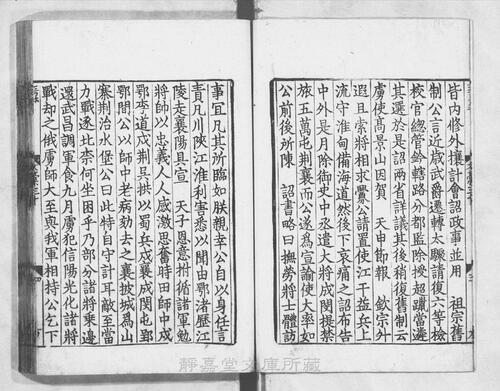 皆内修外攘計會詔政事並用 祖宗舊
制公言近歲武爵遷轉太驟請復六等檢
校官總管鈐轄路分都監除授超躐當遴
其選於是詔兩省詳議其後稍復舊制云
虜使高景山因賀 天申節報 欽宗升
遐且索將相求釁公請置使江干益兵上
流守淮甸備海道然後下哀痛之詔布告
中外是月除御史中丞遣大將成閔提禁
旅五萬屯荆襄而公遂為宣諭使大率如
公前後所陳 詔書略曰撫勞將士體訪
事宜凡其所臨如朕親幸公自以身任言
責凡川陝江淮利害悉以聞由鄂渚歷江
陵走襄陽具宣 天子恩意拊循諸軍勉
將帥以忠義人人感激思奮時田師中戍
鄂李道戍荆吳拱以蜀兵戍襄成閔屯郢
鄂間公以師中老病劾去之襄披城為山
寨荆治水堡公曰此特自守計耳敵至當
力戰逐北奈何坐困乎乃部分諸將乘邊
還武昌調軍食九月虜犯信陽光化諸將
戰却之俄虜師大至與我軍相持公乞下
靜嘉堂文庫所藏